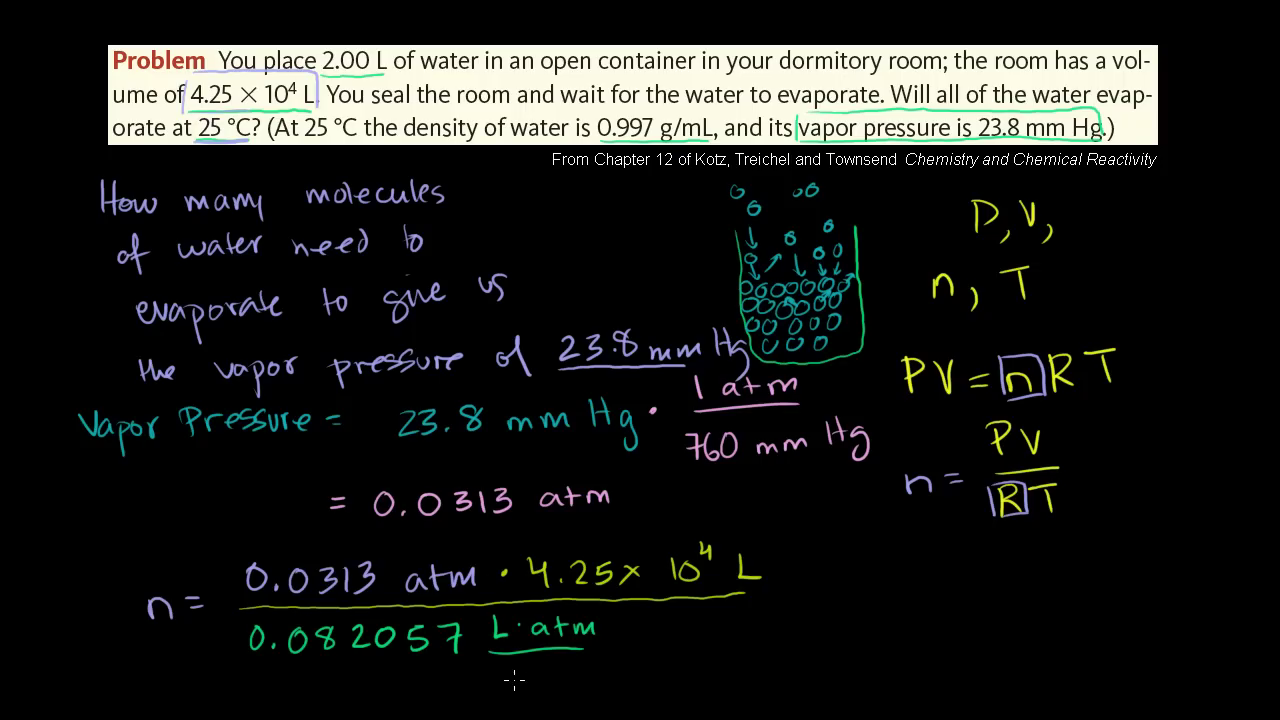 Problem You place 2.00 L of water in an open container in your dormitory room; the room has a vol-
ume of 4.25 × 10⁴ L. You seal the room and wait for the water to evaporate. Will all of the water evap-
orate at 25 °C? (At 25 °C the density of water is 0.997 g/mL, and its vapor pressure is 23.8 mm Hg.)
From Chapter 12 of Kotz, Treichel and Townsend Chemistry and Chemical Reactivity
How many molecules
of water need to
evaporate to give us
the vapor pressure of 23.8 mm Hg
Vapor Pressure = 23.8 mm Hg · 1 atm
760 mm Hg
= 0.0313 atm
n = 0.0313 atm · 4.25 × 10⁴ L
0.082057 L · atm
P, V,
n, T
PV = nRT
n = PV
RT